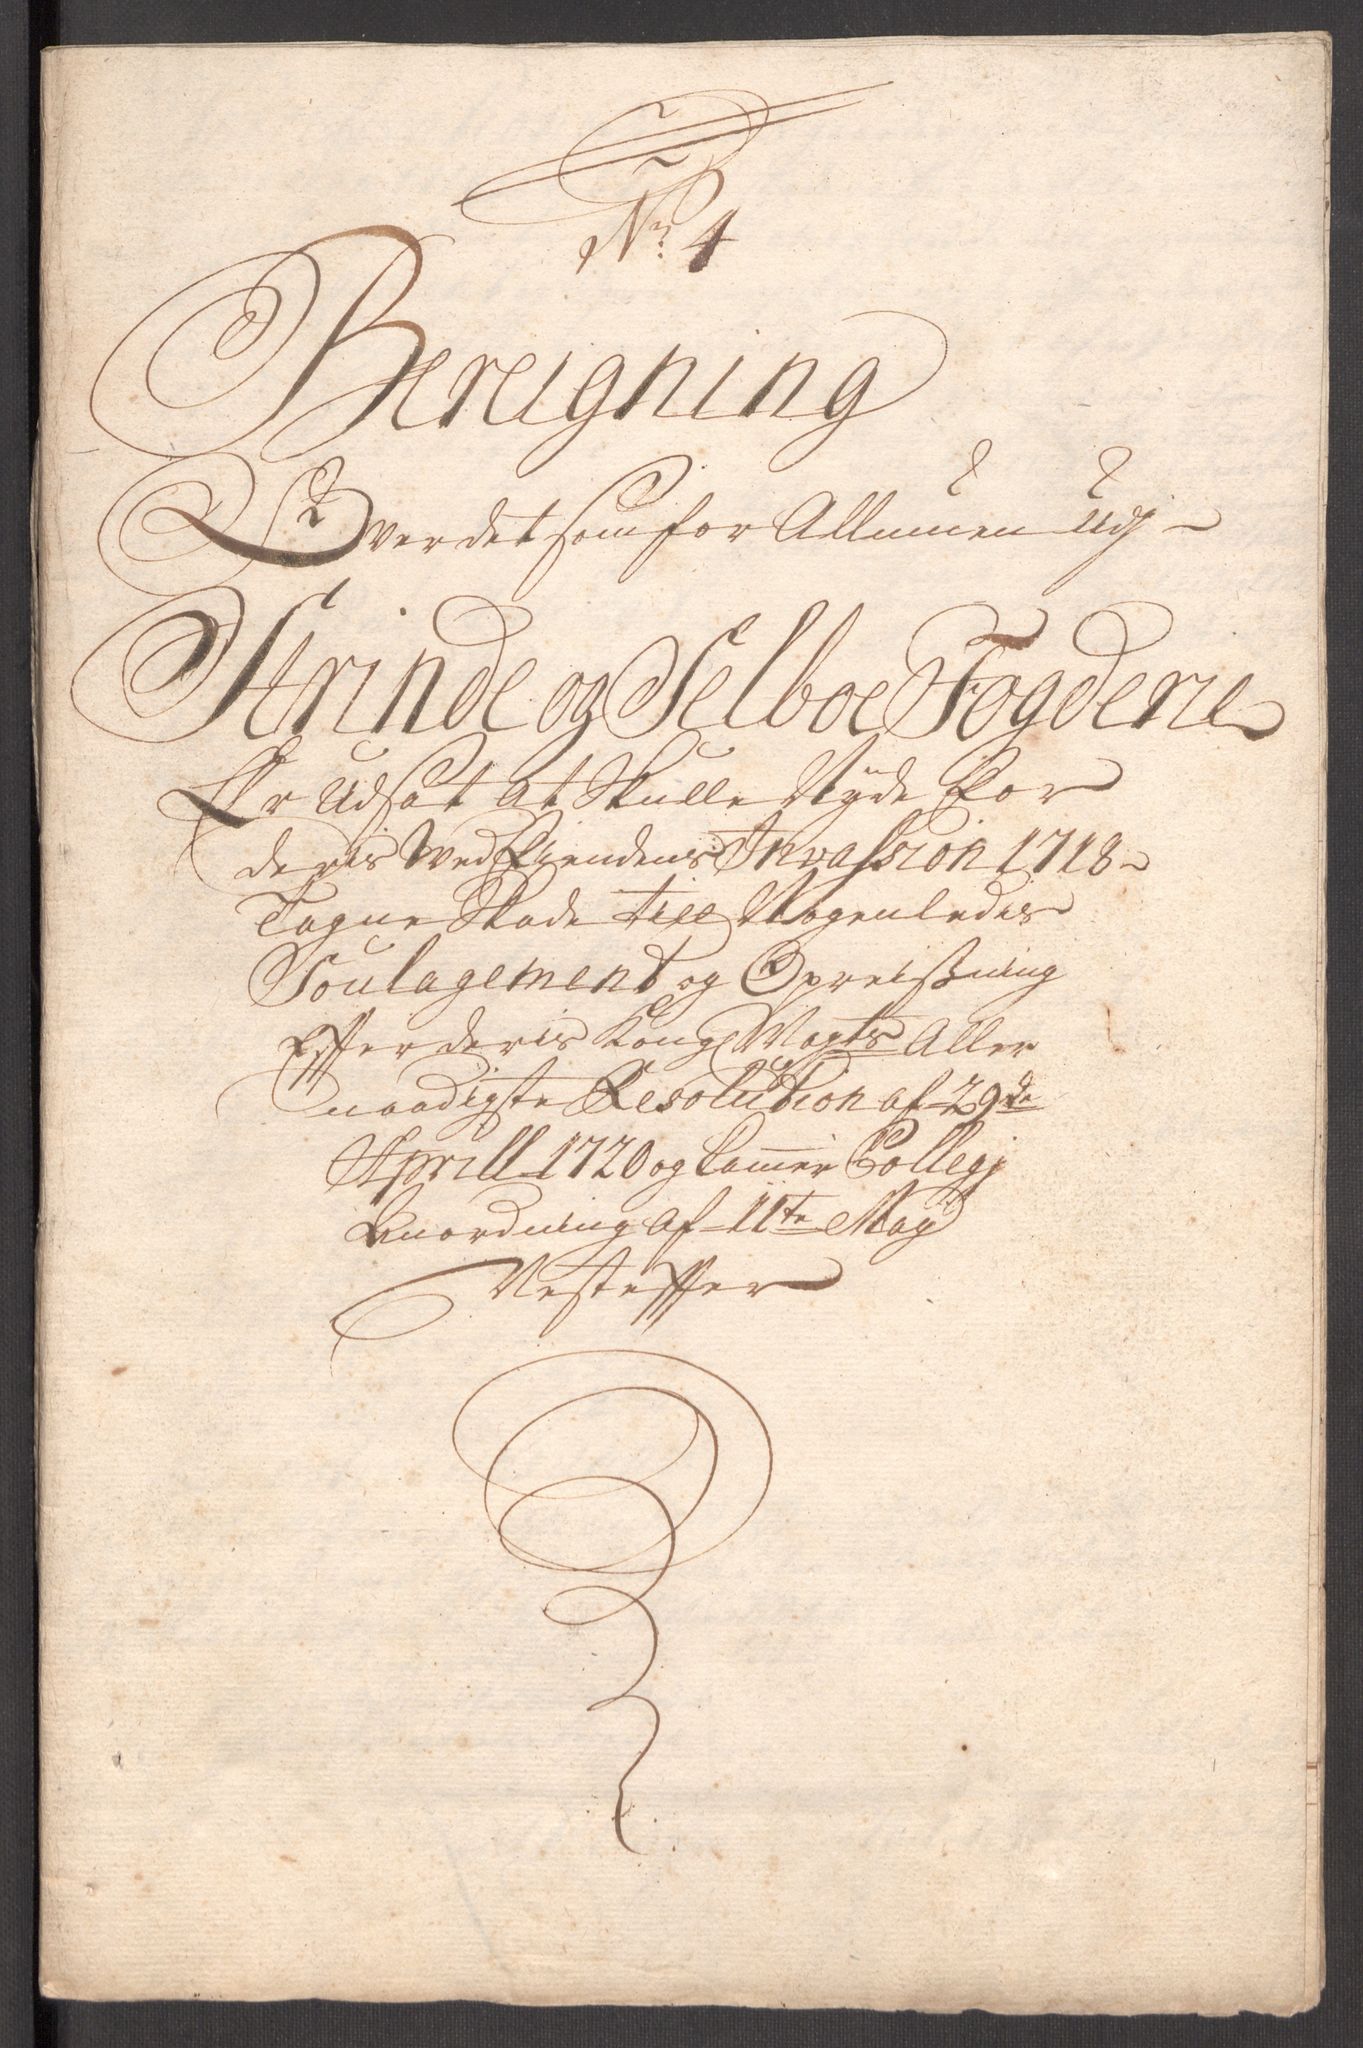 No 4
Bereigning
Over det som for Allmuen udj
Strinde og Selboe Fogderie
Er Udsat at Skulle Nyde for
deris Ved Fiendens Invassion 1718
Tagne Skade till Nogenledis
Soulagement og Opreisning
Effter deris Kongl Mayts Aller
naadigste Resolution af 29de
Aprill 1720 og Camer Collegj
Anordning af 11te May
Nesteffter